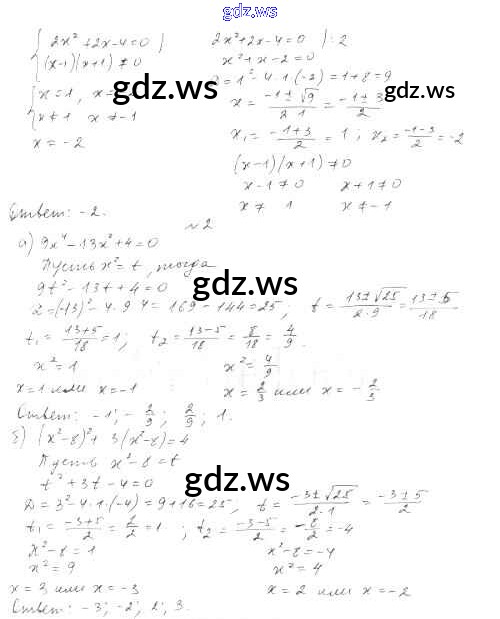 gdz.ws
{ 2x² + 2x - 4 = 0 }:
{ (x-1)(x+1) ≠ 0
{ x = 1, x =
{ x ≠ 1 x ≠ -1
x = -2
2x² + 2x - 4 = 0 ):2
x² + x - 2 = 0
= 1² - 4·1·(-2) = 1+8 = 9
x = (-1 ± √9)/(2·1) = (-1 ± 3)/2
x₁ = (-1+3)/2 = 1; x₂ = (-1-3)/2 = -2
(x-1)(x+1) ≠ 0
x-1 ≠ 0 x+1 ≠ 0
x ≠ 1 x ≠ -1
gdz.ws
gdz.ws
Ответ: -2.
№2
а) 9x⁴ - 13x² + 4 = 0
Пусть x² = t, тогда
9t² - 13t + 4 = 0
gdz.ws
D = (-13)² - 4·9·4 = 169 - 144 = 25; t = (13 ± √25)/(2·9) = (13 ± 5)/18
t₁ = (13+5)/18 = 1; t₂ = (13-5)/18 = 8/18 = 4/9
x² = 1 x² = 4/9
x = 1 или x = -1 x = 2/3 или x = -2/3
Ответ: -1; -2/9; 2/9; 1.
б) (x²-8)² + 3(x²-8) = 4
Пусть x² - 8 = t
t² + 3t - 4 = 0
gdz.ws
D = 3² - 4·1·(-4) = 9+16 = 25, t = (-3 ± √25)/(2·1) = (-3 ± 5)/2
t₁ = (-3+5)/2 = 2/2 = 1; t₂ = (-3-5)/2 = -8/2 = -4
x² - 8 = 1 x² - 8 = -4
x² = 9 x² = 4
x = 3 или x = -3 x = 2 или x = -2
Ответ: -3; -2; 2; 3.
gdz.ws